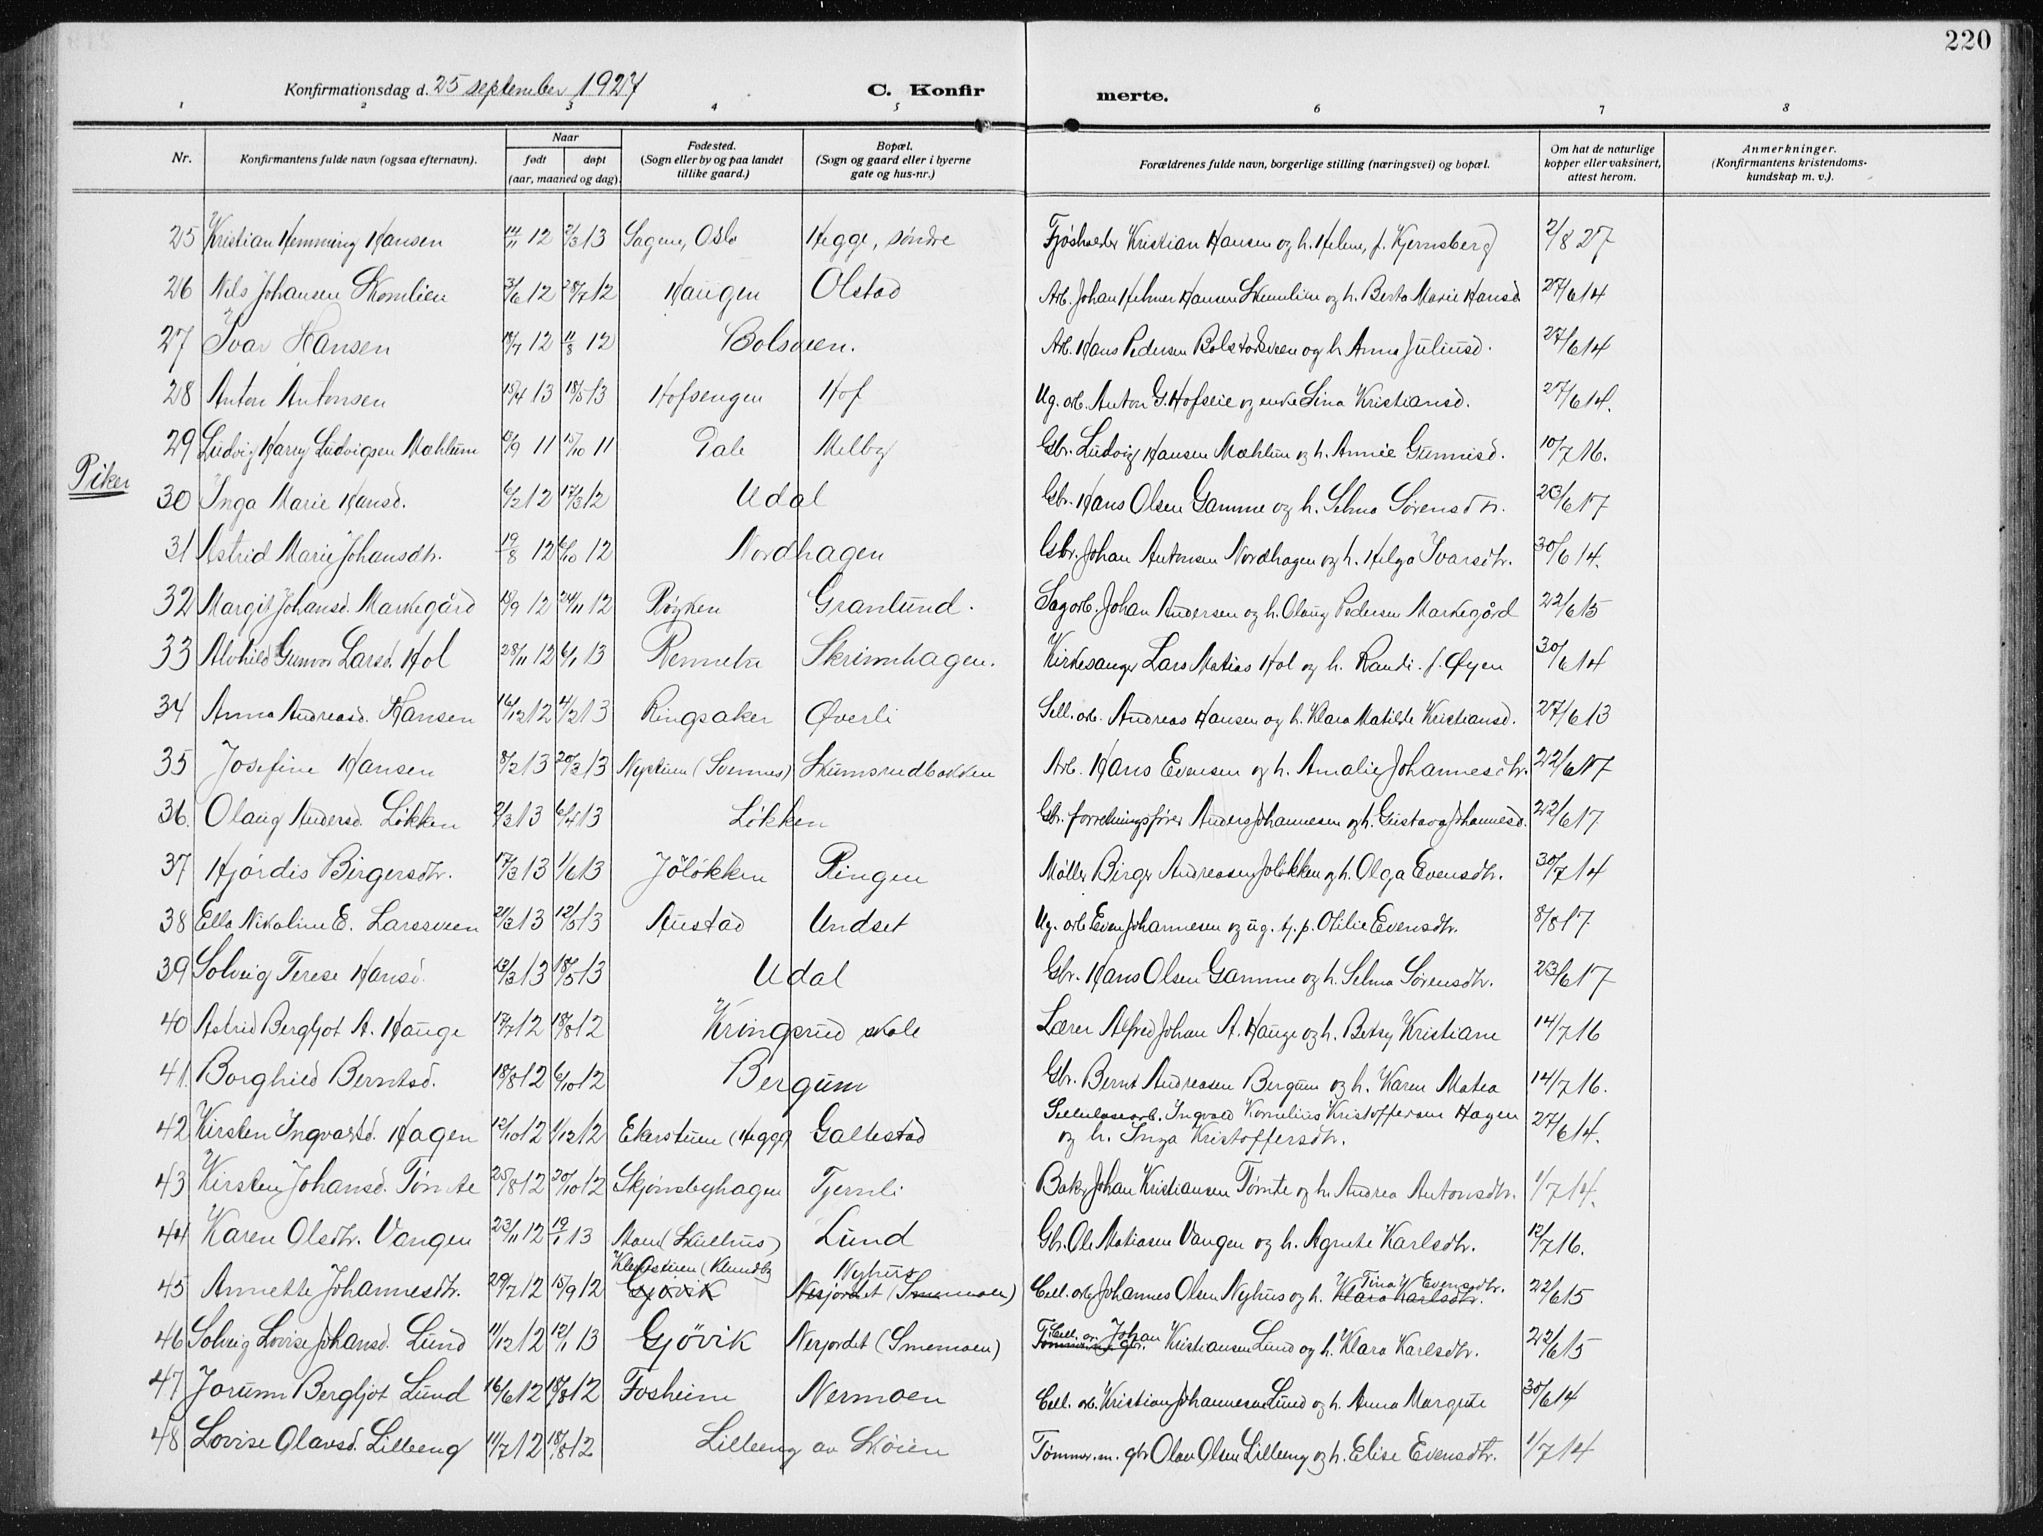 220
Konfirmationsdag d. 25 september 1927
C. Konfirmerte.
1 2 3 4 5 6 7 8
Nr. Konfirmantens fulde navn (ogsaa efternavn). Naar født døpt (aar, maaned og dag). Fødested. (Sogn eller by og paa landet tillike gaard.) Bopæl. (Sogn og gaard eller i byerne gate og hus-nr.) Forældrenes fulde navn, borgerlige stilling (næringsvei) og bopæl. Om hat de naturlige kopper eller vaksinert, attest herom. Anmerkninger. (Konfirmantens kristendoms-kundskap m. v.).
25 Kristian Hemming Hansen 14/11 12 2/3 13 Sagene, Oslo Hegge, søndre Fjøsholder Kristian Hansen og h. Helene, f. Kjernsberg 2/8 27
26 Nils Johansen Skomlien 3/6 12 28/7 12 Haugen Olstad Arb. Johan Helmer Hansen Skumlien og h. Berta Marie Hansd. 27/6 14
27 Ivar Hansen 18/7 12 11/8 12 Bolsveen. Arb. Hans Pedersen Bolstadsveen og h. Anna Juliusd. 27/6 14
28 Anton Antonsen 15/4 13 18/5 13 Hofsengen Hof Ug. arb. Anton G. Hofseie og enke Lina Kristiansd. 27/6 14.
29 Ludvig Harry Ludvigsen Mæhlum 13/9 11 15/10 11 Dale Melby Gbr. Ludvig Hansen Mæhlum og h. Annie Gunnisd. 10/7 16.
Piker
30 Inga Marie Hansd. 6/2 12 17/3 12 Udal Gbr. Hans Olsen Gamme og h. Selma Sørensdtr. 23/6 17
31 Astrid Marie Johansdtr. 19/8 12 6/10 12 Nordhagen Gbr. Johan Antonsen Nordhagen og h. Helga Ivarsdtr. 30/6 14.
32 Margit Johansd. Markegård 15/9 12 24/11 12 Røyken Granlund. Sagarb. Johan Andersen og h. Olaug Pedersen Markegård 22/6 15
33 Alvhild Gunvor Larsd. Hol 28/11 12 6/1 13 Rennebu Skrinnhagen. Kirkesanger Lars Matias Hol og h. Randi f. Øyen 30/6 14
34 Anna Andreasd. Hansen 16/12 12 14/2 13 Ringsaker Øverli Sell. arb. Andreas Hansen og h. Klara Matilde Kristiansd. 27/6 13
35 Josefine Hansen 8/2 13 20/3 13 Nystuen (Svennes) Skumsrudbakken Arb. Hans Evensen og h. Amalie Johannesdtr. 22/6 17
36. Olaug Andersd. Løkken 2/3 13 6/4 13 Løkken Gbr. forretningsfører Anders Johannesen og h. Gustava Johannesd. 22/6 17
37 Hjørdis Birgersdtr. 17/3 13 1/6 13 Joløkken Ringen Møller Birger Andreasen Joløkken og h. Olga Evensdtr. 30/7 14
38 Ella Nikoline E. Larssveen 21/3 13 12/5 13 Austad Undset Ug. arb. Even Johannesen og ug. tj. p. Otilie Evensdtr. 8/8 17
39 Solveig Terese Hansd. 13/3 13 18/5 13 Udal Gbr. Hans Olsen Gamme og h. Selma Sørensdtr. 23/6 17
40 Astrid Bergljot A. Hauge 17/7 12 18/8 12 Kringsrud skole Lærer Alfred Johan A. Hauge og h. Betsy Kristiane 14/7 16
41. Borghild Berntsd. 18/8 12 6/10 12 Bergum Gbr. Bernt Andreasen Bergum og h. Karen Matea 14/7 16.
42 Kirsten Ingvartsd. Hagen 12/10 12 1/12 12 Ekerstuen (Hegge) Gallestad Sellulosearb. Ingvald Kornelius Kristoffersen Hagen
og h. Inga Kristoffersdtr. 27/6 14.
43 Kirsten Johansd. Tømte 25/8 12 20/10 12 Skjønsbyhagen Tjernli Baker Johan Kristiansen Tømte og h. Andrea Antonsdtr. 1/7 14.
44 Karen Olsdtr. Vangen 23/11 12 19/1 13 Moen (Skuthus) Lund Gbr. Ole Matiasen Vangen og h. Agnete Karlsdtr. 12/7 16.
45 Annette Johannesdtr. 29/7 12 15/9 12 Gjøvik Nyhus Nerjordet (Smemoen) Cell. arb. Johannes Olsen Nyhus og h. Klara Karlsdtr. Tina Evensdtr. 22/6 15
46 Solveig Lovise Johansd. Lund 11/12 12 12/1 13 Gjøvik Nerjordet (Smemoen) Cell. arb. Johan Kristiansen Lund og h. Klara Karlsdtr. 22/6 15
47 Jorunn Bergljot Lund 16/6 12 18/8 12 Fosheim Nermoen Cell. arb. Kristian Johannesen Lund og h. Anna Margrete 30/6 14
48 Lovise Olavsd. Lilleeng 11/7 12 18/8 12 Lilleeng av Skøien Tømmer.m. gbr. Olav Olsen Lilleeng og h. Elise Evensdtr. 1/7 14